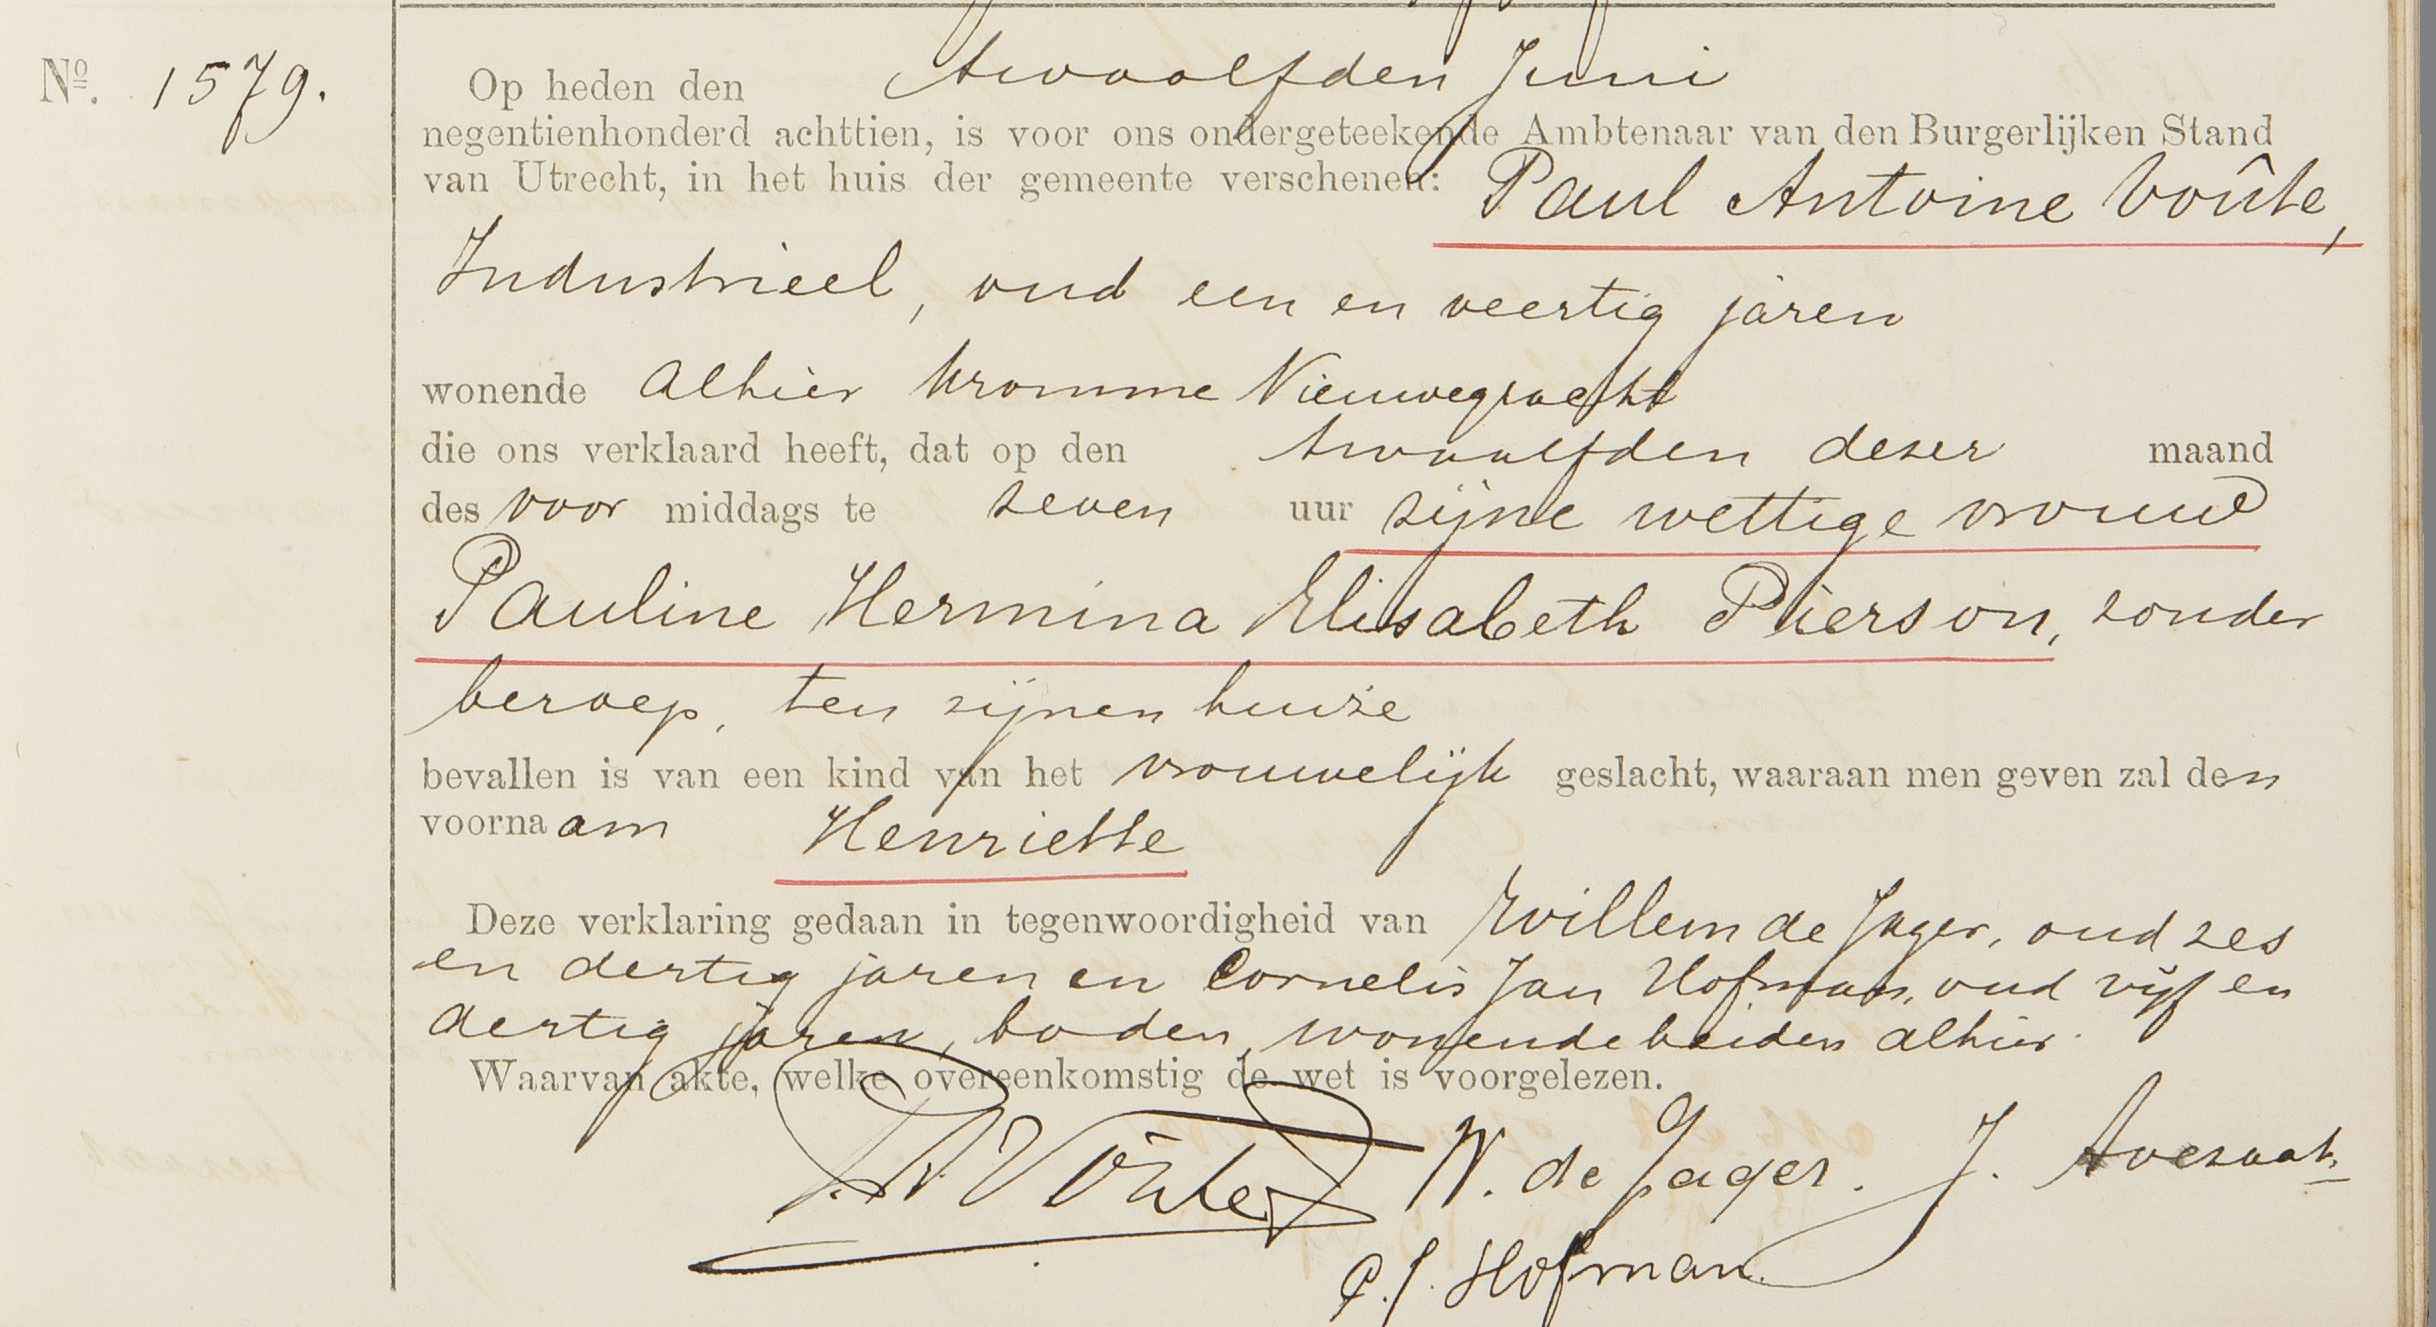 No. 1579.
Op heden den twaalfden Juni
negentienhonderd achttien, is voor ons ondergeteekende Ambtenaar van den Burgerlijken Stand
van Utrecht, in het huis der gemeente verschenen: Paul Antoine Voûte,
Industrieel, oud een en veertig jaren
wonende alhier Kromme Nieuwegracht
die ons verklaard heeft, dat op den twaalfden dezer maand
des voor middags te zeven uur zijne wettige vrouw
Pauline Hermina Elisabeth Pierson, zonder
beroep, ten zijnen huize
bevallen is van een kind van het vrouwelijk geslacht, waaraan men geven zal den
voornaam Henriette
Deze verklaring gedaan in tegenwoordigheid van Willem de Jager, oud zes
en dertig jaren en Cornelis Jan Hofman, oud vijf en
dertig jaren, boden, wonende beiden alhier.
Waarvan akte, welke overeenkomstig de wet is voorgelezen.
P.A. Voûte W. de Jager. J. Avezaat
C.J. Hofman.